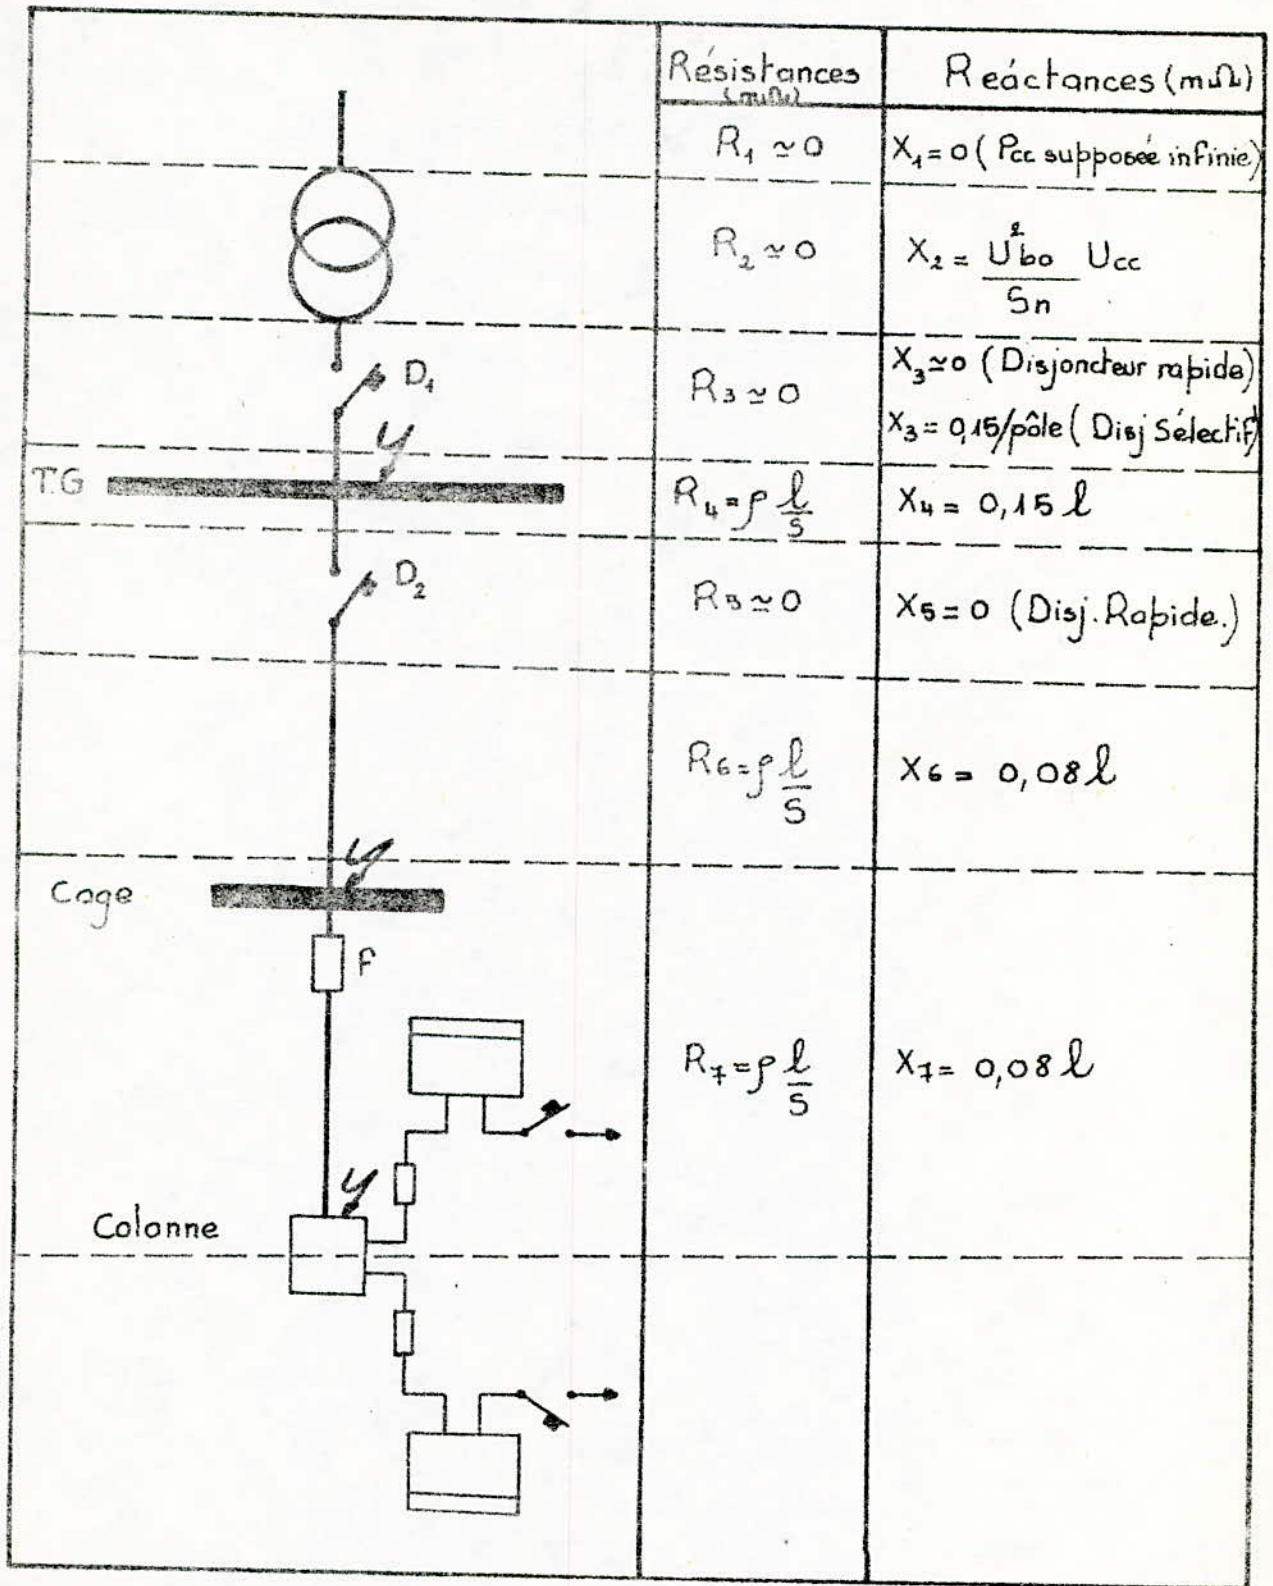 Résistances
(mΩ)
Reáctances (mΩ)
R₁ ≃ 0
X₁ = 0 ( Pcc supposée infinie)
R₂ ≃ 0
X₂ = U²bo / Sn Ucc
D₁
R₃ ≃ 0
X₃ ≃ 0 ( Disjoncteur rapide)
X₃ = 0,15/pôle ( Disj Sélectif)
T.G
R₄ = ρ l/S
X₄ = 0,15 l
D₂
R₅ ≃ 0
X₅ = 0 (Disj. Rapide.)
R₆ = ρ l/S
X₆ = 0,08 l
Cage
F
R₇ = ρ l/S
X₇ = 0,08 l
Colonne